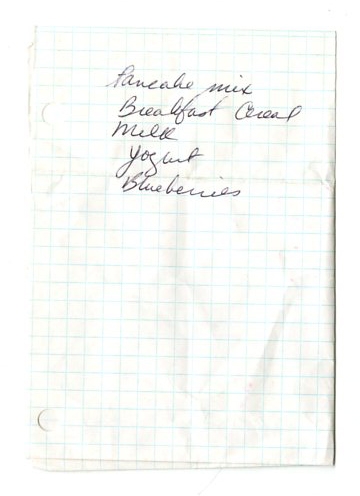 Pancake mix
Breakfast Cereal
Milk
Yogurt
Blueberries